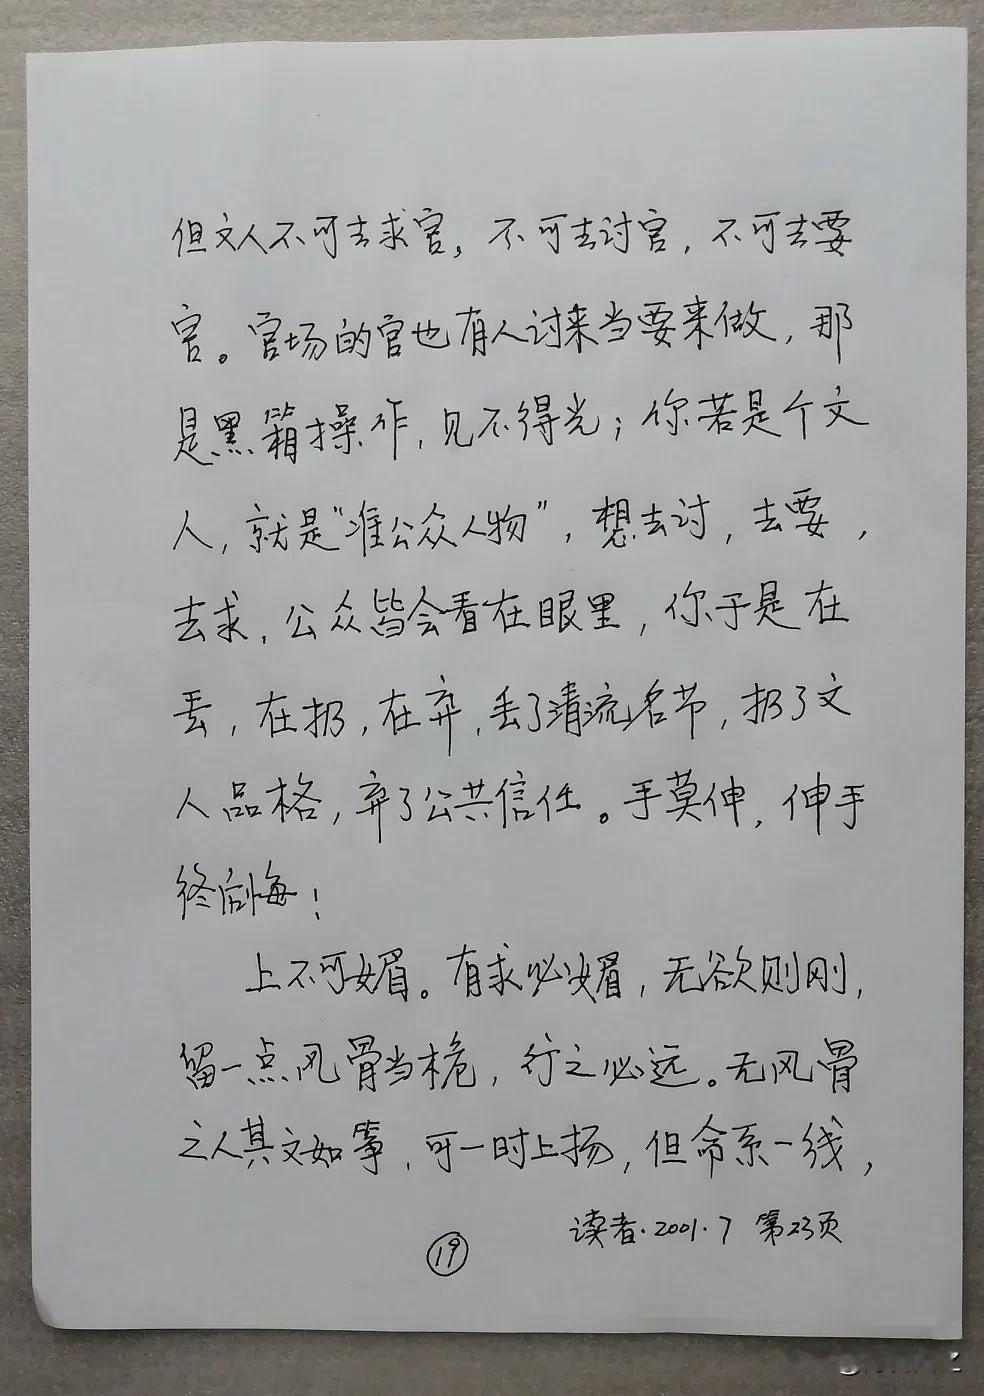 但文人不可去求官，不可去讨官，不可去要
官。官场的官也有人讨来当要来做，那
是黑箱操作，见不得光；你若是个文
人，就是“准公众人物”，想去讨，去要，
去求，公众皆会看在眼里，你于是在
丢，在扔，在弃，丢了清流名节，扔了文
人品格，弃了公共信任。手莫伸，伸手
终后悔！
上不可媚。有求必媚，无欲则刚，
留一点风骨当桅，行之必远。无风骨
之人其文如筝，可一时上扬，但命系一线，
读者·2001·7 第23页
19